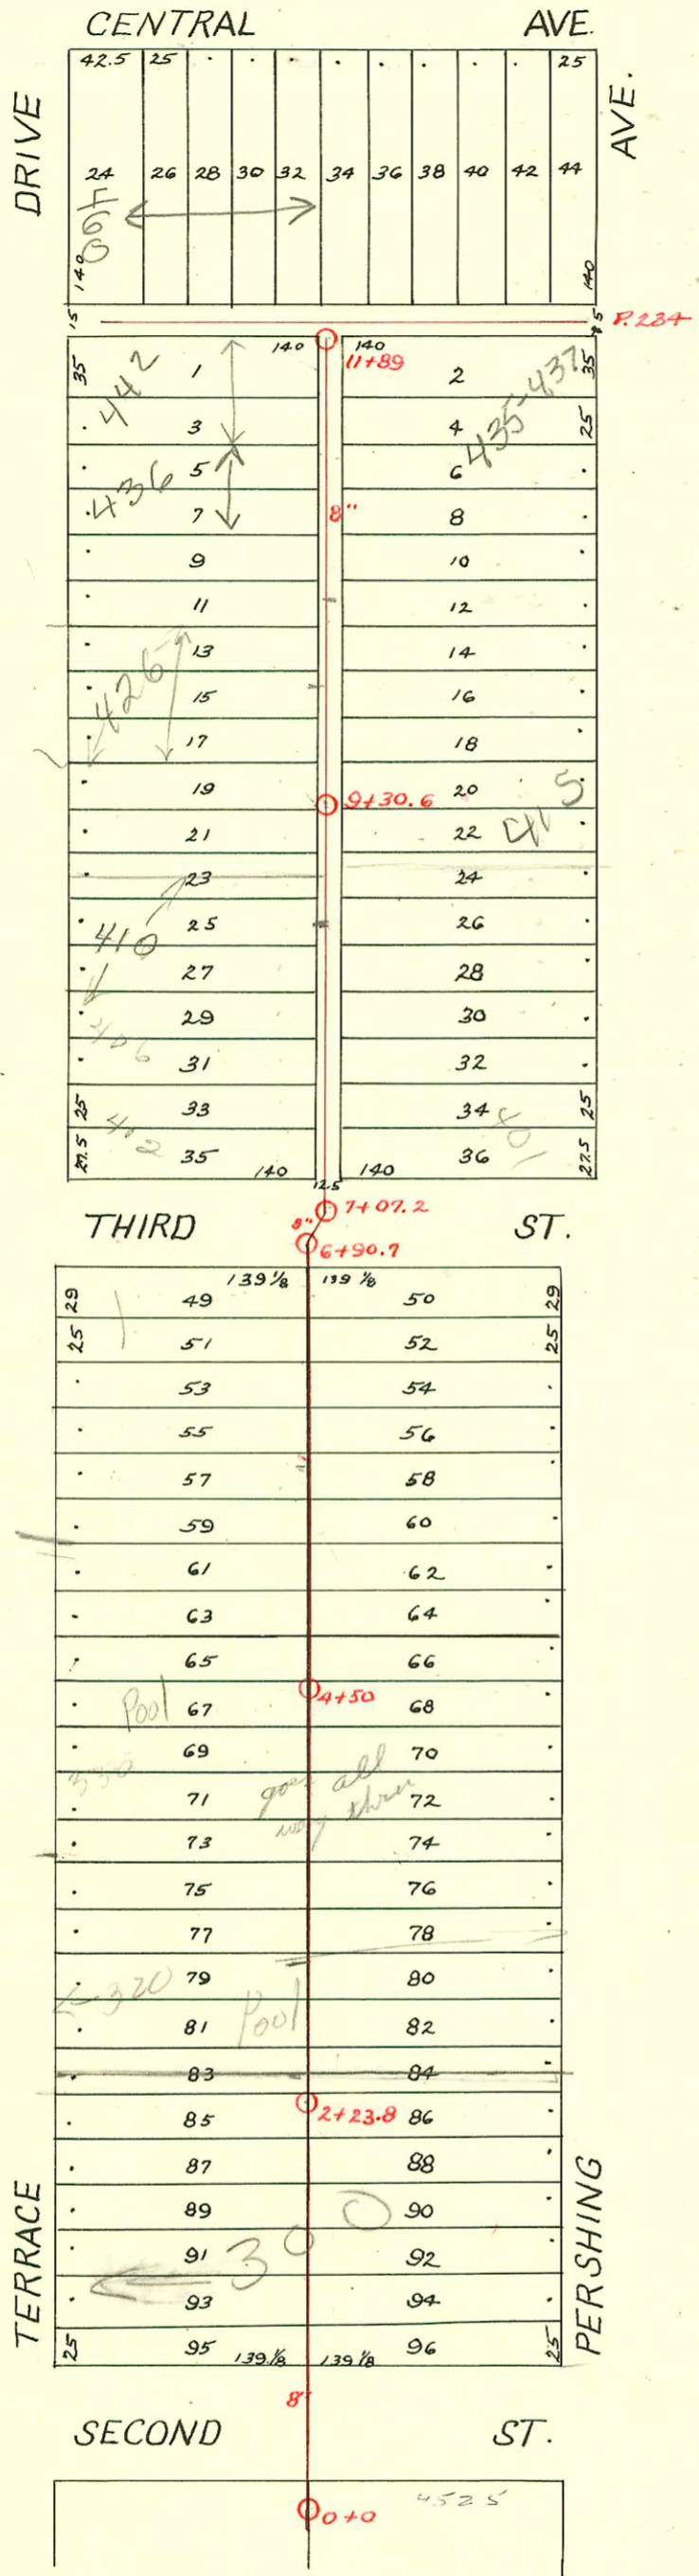 CENTRAL AVE.
DRIVE
AVE.
42.5 25 · · · · · · · · 25
24 26 28 30 32 34 36 38 40 42 44
460
140 140
15 5 P.234
140 140
11+89
35 1 2 35
442 435-437
· 3 4 25
· 5 6 ·
436
· 7 8 ·
8"
· 9 10 ·
· 11 12 ·
· 13 14 ·
426
· 15 16 ·
· 17 18 ·
· 19 20 ·
9+30.6
415
· 21 22 ·
· 23 24 ·
· 25 26 ·
410
· 27 28 ·
· 29 30 ·
406
· 31 32 ·
25 33 34 25
402 401
27.5 35 36 27.5
140 140
12.5
7+07.2
THIRD ST.
8"
6+90.7
139 1/8 139 1/8
29 49 50 29
25 51 52 25
· 53 54 ·
· 55 56 ·
· 57 58 ·
· 59 60 ·
· 61 62 ·
· 63 64 ·
· 65 66 ·
4+50
Pool
· 67 68 ·
· 69 70 ·
330
goes all
way thru
· 71 72 ·
· 73 74 ·
· 75 76 ·
· 77 78 ·
· 79 80 ·
320
Pool
· 81 82 ·
· 83 84 ·
2+23.8
· 85 86 ·
· 87 88 ·
· 89 90 ·
300
· 91 92 ·
· 93 94 ·
25 95 96 25
139 1/8 139 1/8
TERRACE
PERSHING
8"
SECOND ST.
4525
0+0